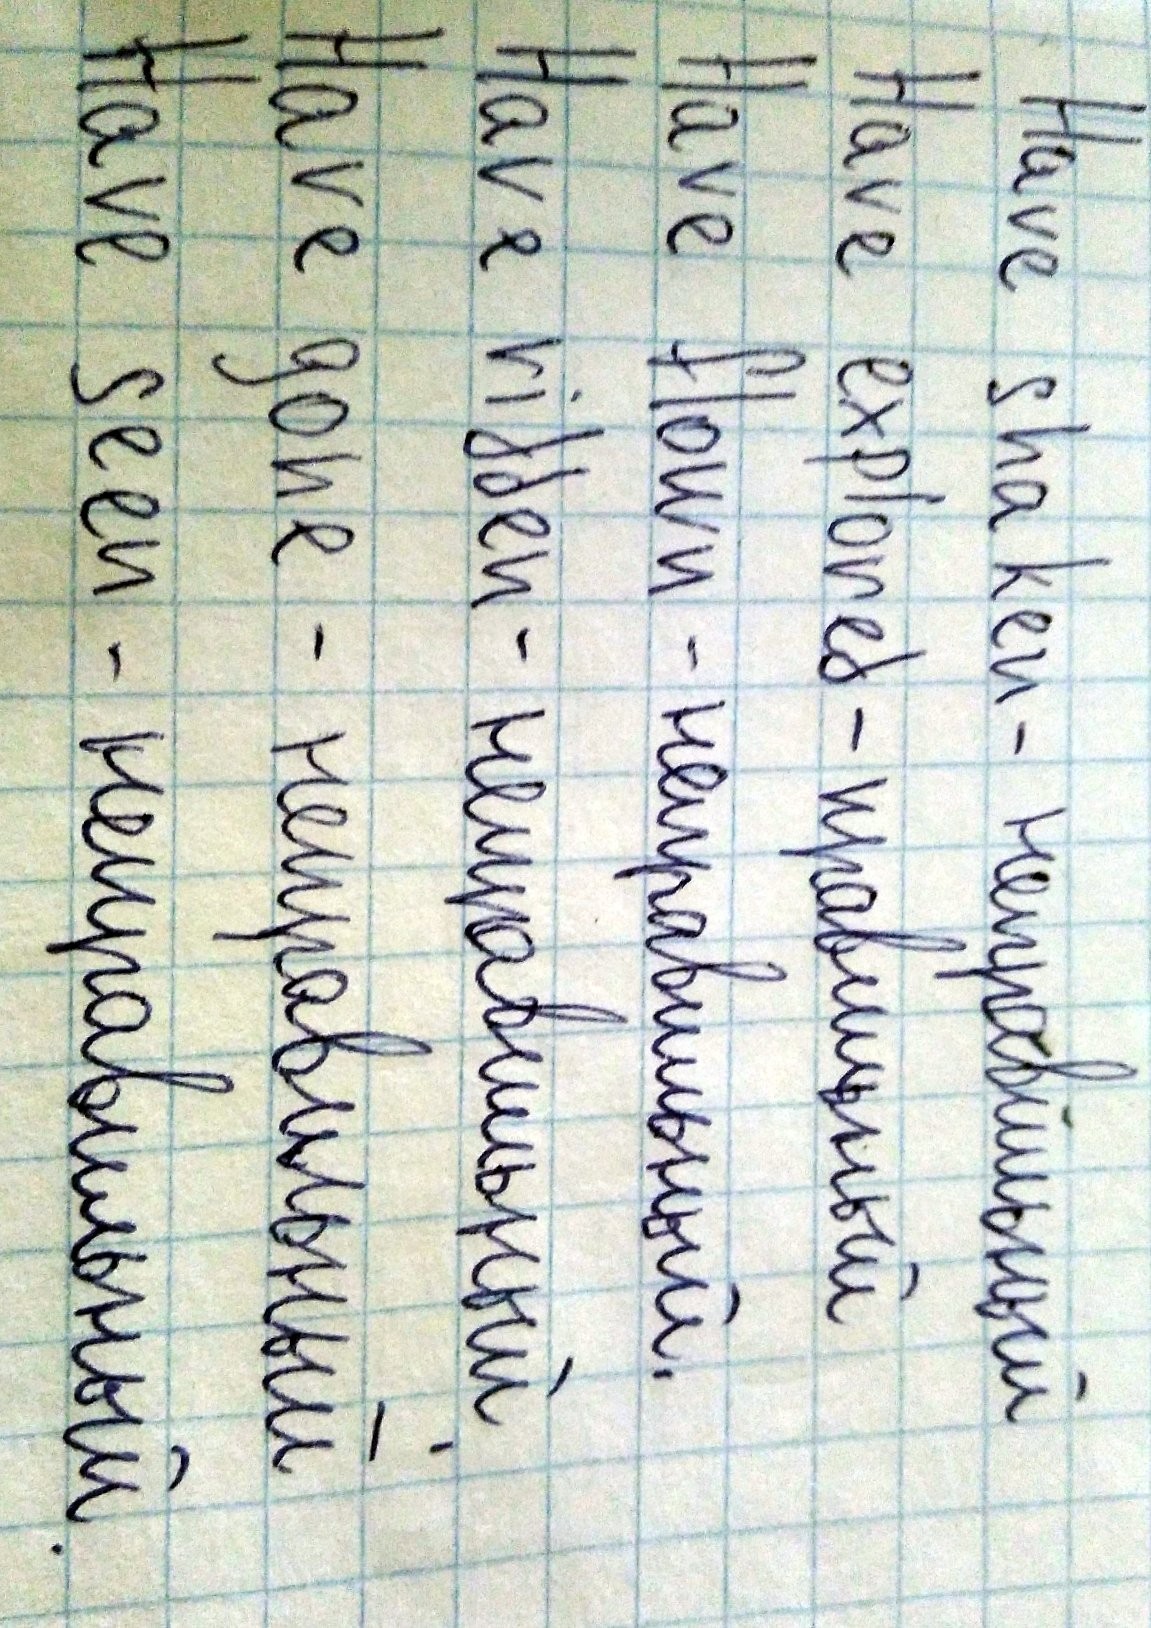 Have shaken - неправильный
Have explored - правильный
Have flown - неправильный.
Have ridden - неправильный
Have gone - неправильный
Have seen - неправильный.